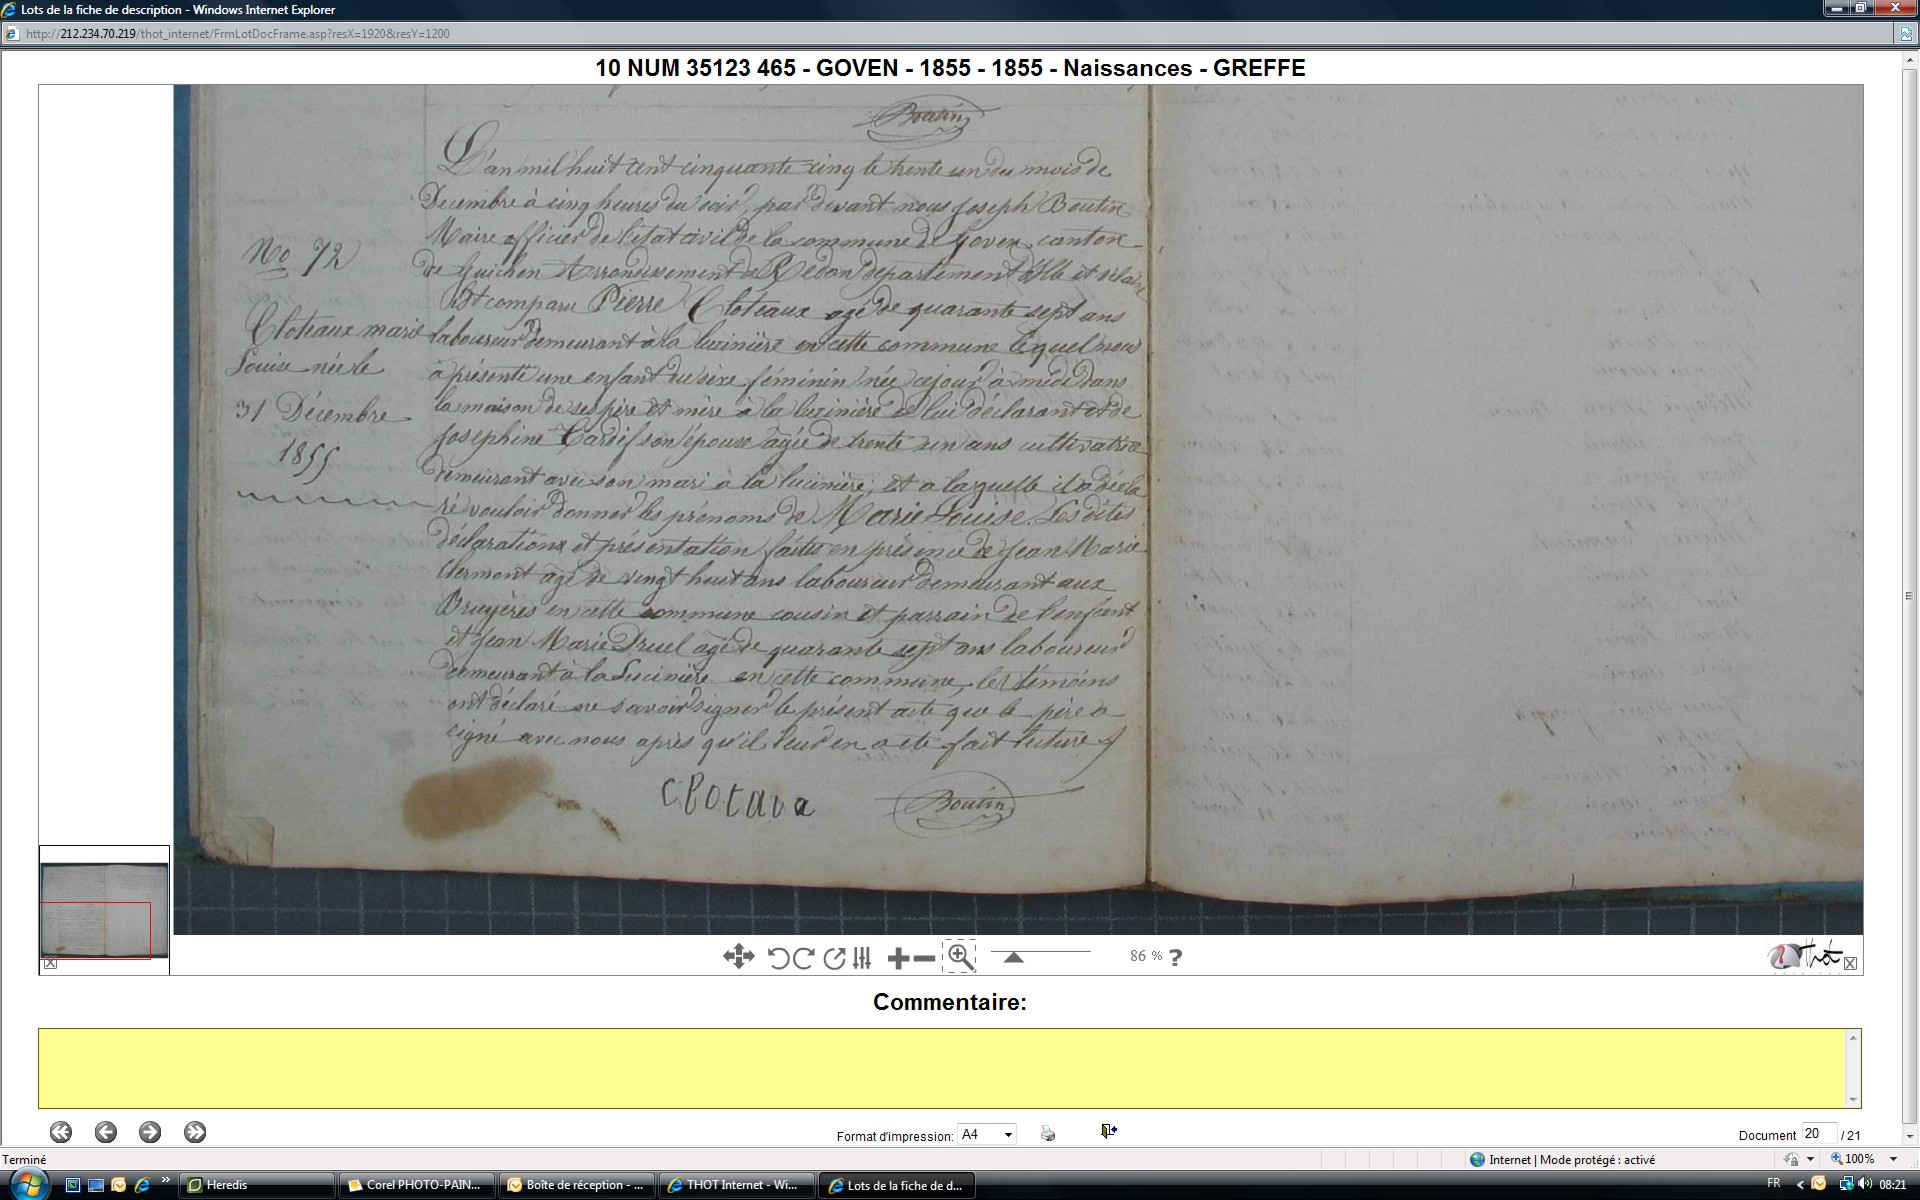 Lots de la fiche de description - Windows Internet Explorer
http://212.234.70.219/thot_internet/FrmLotDocFrame.asp?resX=1920&resY=1200
10 NUM 35123 465 - GOVEN - 1855 - 1855 - Naissances - GREFFE
Boutin
L'an mil huit cent cinquante cinq le trente un du mois de
Decembre à cinq heures du soir, par devant nous Joseph Boutin
Maire officier de l'état civil de la commune de Goven canton
de Guichen Arrondissement de Redon departement d'Ille et vilaine
Est comparu Pierre Cloteaux agé de quarante sept ans
laboureur demeurant à la lucinière en cette commune lequel nous
à présenté une enfant du sèxe féminin née ce jour à midi dans
la maison de ses père et mère à la lucinière de lui déclarant et de
Josephine Tardif son épouse agée de trente un ans cultivatrice
demeurant avec son mari à la lucinière, et a laquelle il a décla
ré vouloir donner les prénoms de Marie Louise. Les dites
déclarations et présentation faites en présence de Jean Marie
Clermont agé de vingt huit ans laboureur demeurant aux
Bruyères en cette commune cousin et parrain de l'enfant
et Jean Marie Druel agé de quarante sept ans laboureur
demeurant à la Lucinière en cette commune, les témoins
ont déclaré ne savoir signer le présent acte que le père a
signé avec nous après qu'il leur en a été fait lecture
No 72
Cloteaux marie
Louise née le
31 Décembre
1855
Boutin
86 %
?
Thot
Commentaire:
Format d'impression: A4
Document 20 / 21
Terminé
Internet | Mode protégé : activé
100%
Heredis
Corel PHOTO-PAIN...
Boîte de réception - ...
THOT Internet - Wi...
Lots de la fiche de d...
FR
08:21